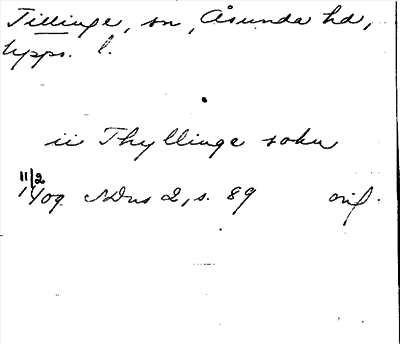 Tillinge, sn, Åsunda hd,
Upps. l.
ii Thyllinge sokn
11/2 1409 SDns 2, s. 89 orig.